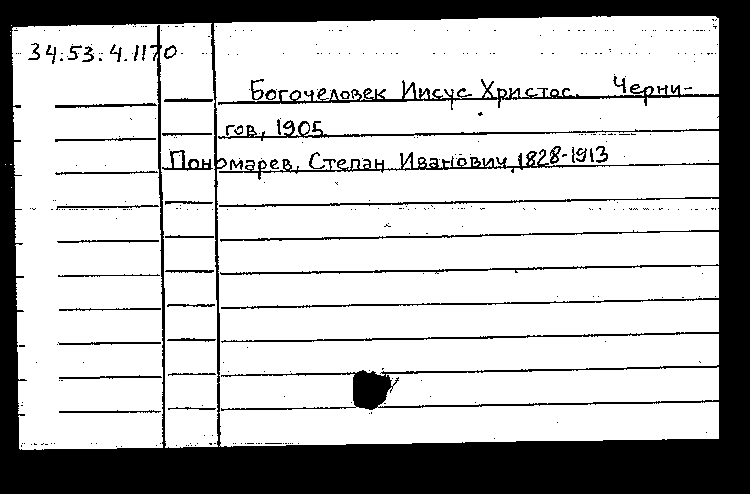 34.53.4.1170
Богочеловек Иисус Христос. Черни-
гов, 1905
Пономарев, Степан Иванович, 1828-1913